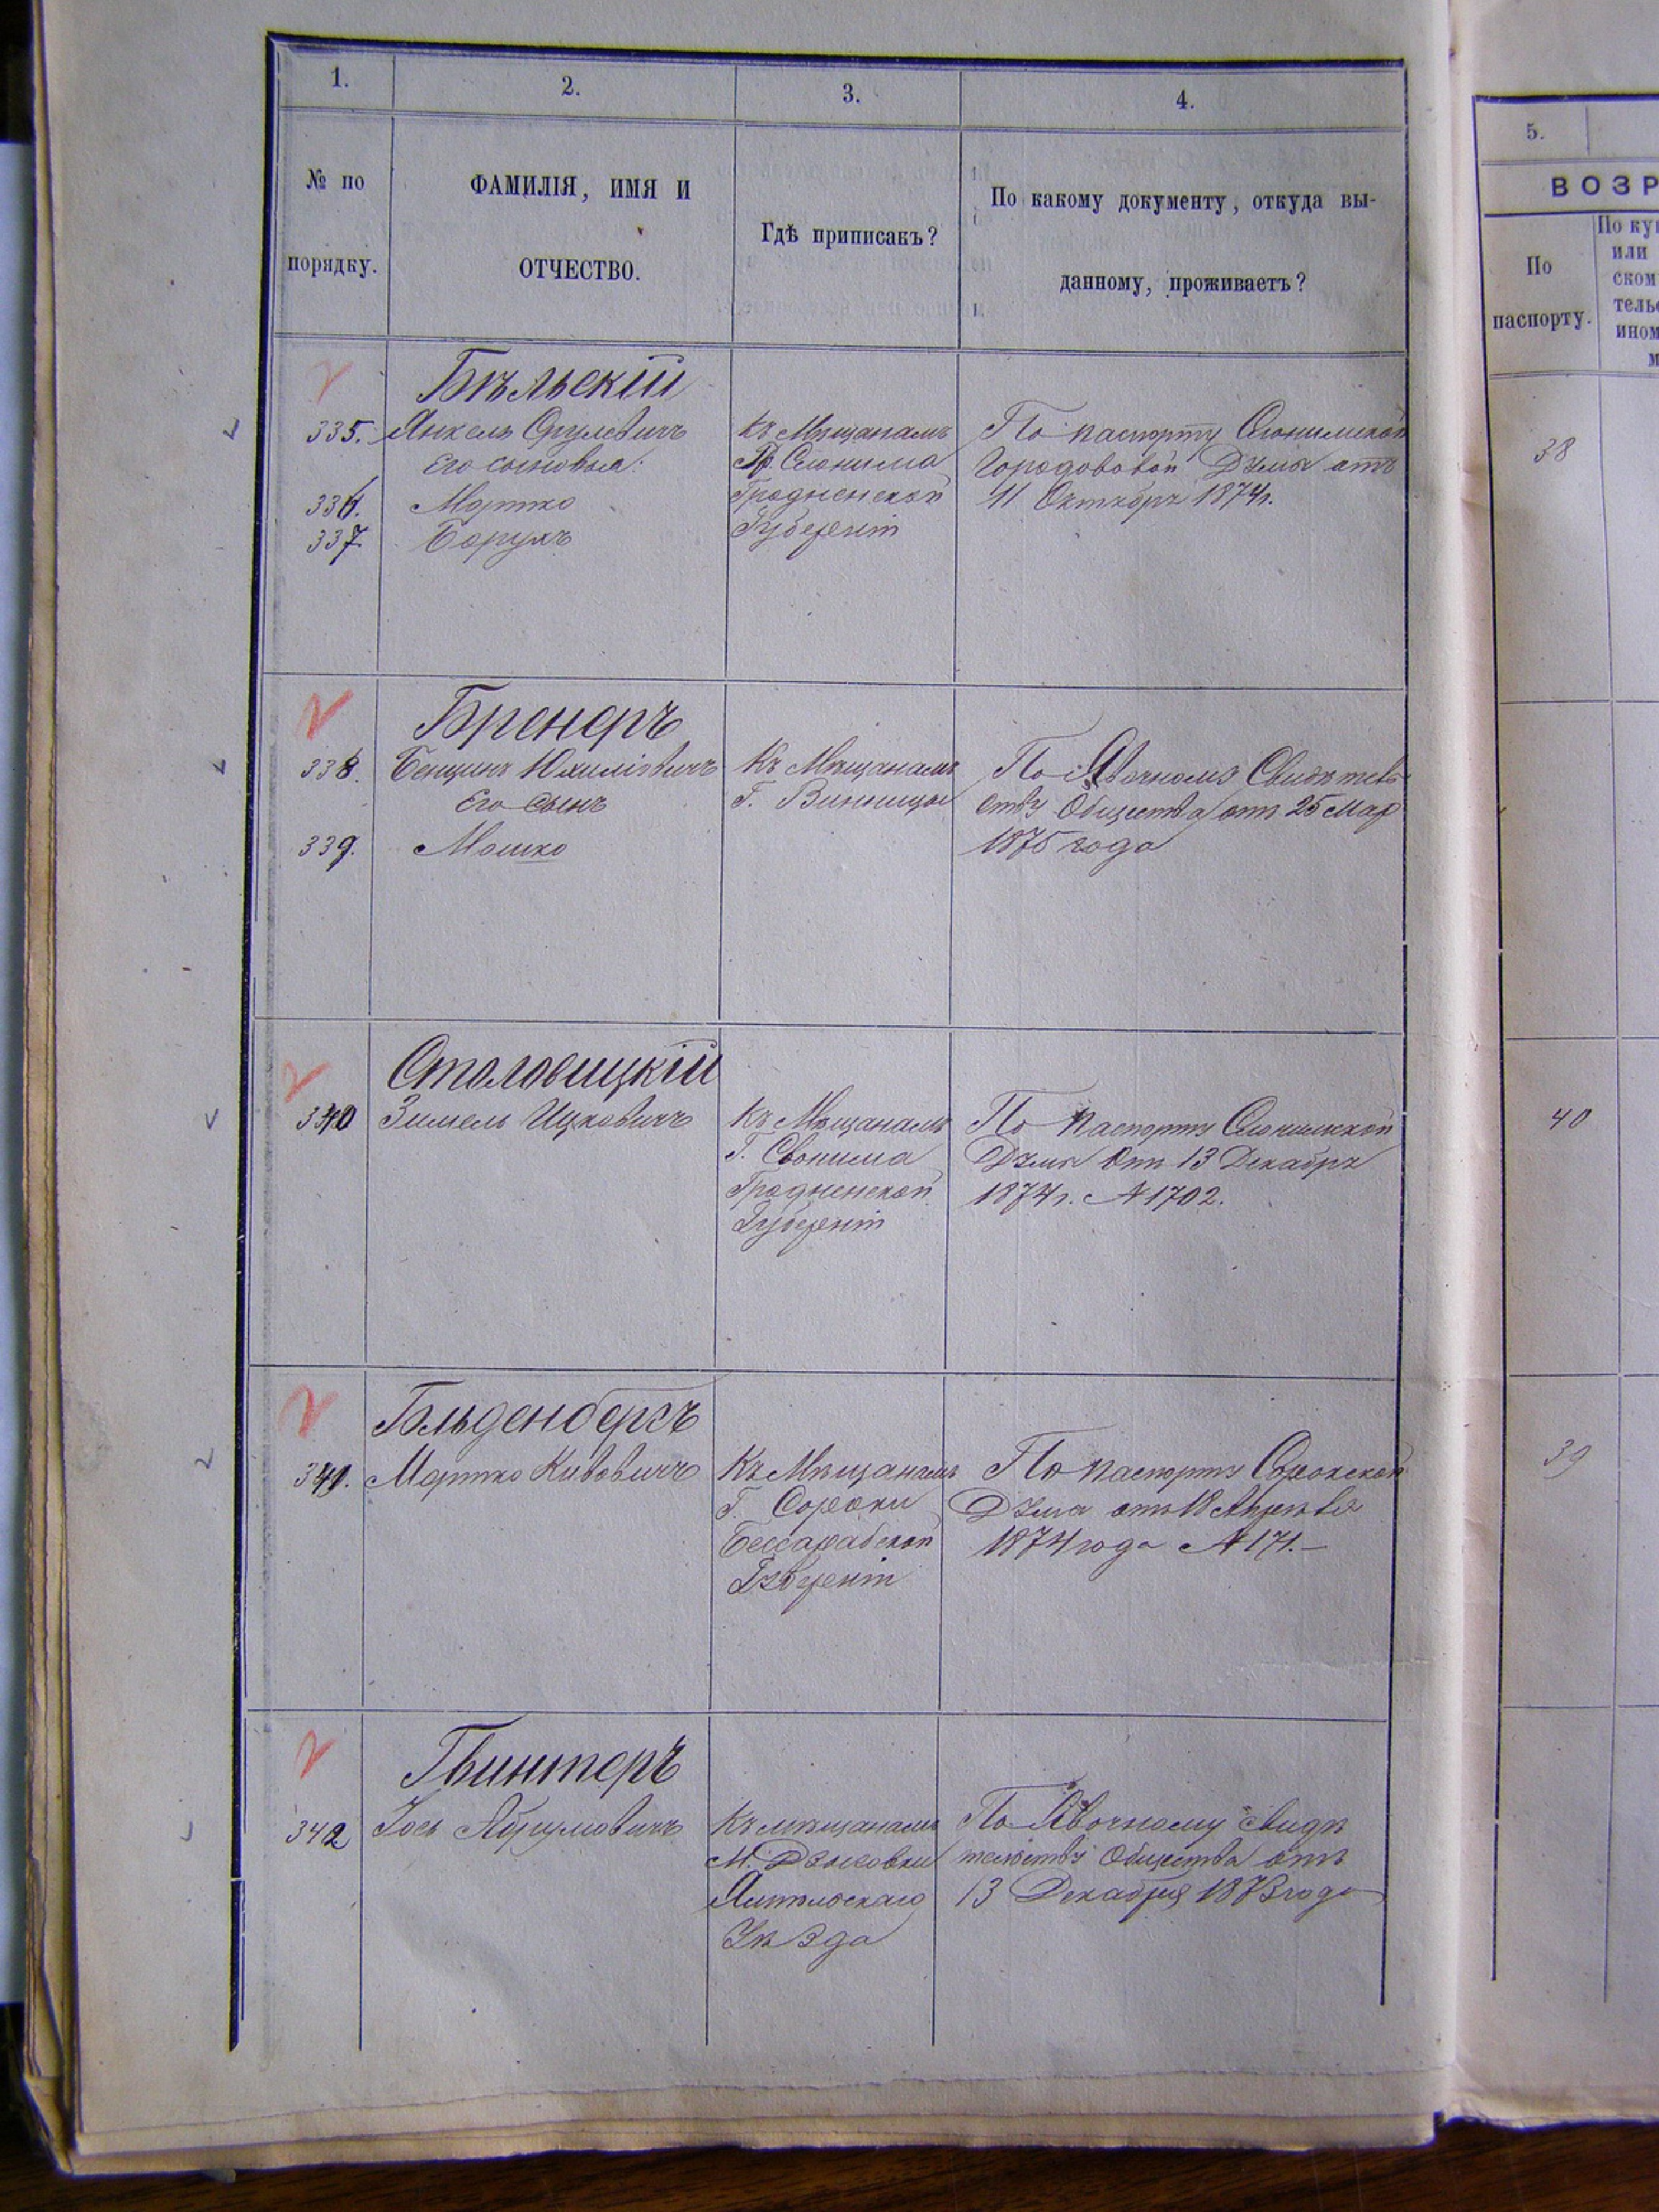 1.
2.
3.
4.
№ по
порядку.
ФАМИЛІЯ, ИМЯ И
ОТЧЕСТВО.
Гдѣ приписакъ?
По какому документу, откуда вы-
данному, проживаетъ?
2
Бѣльскій
335. Янкель Срулевичъ
Его сыновья:
336. Мортко
337 Борухъ
Къ Мѣщанамъ
Гр. Слонима
Гродненской
Губерніи
По паспорту Слонимской
Городовой Думы отъ
11 Октября 1874 г.
2
Бренеръ
338. Бенцинъ Юхиліовичъ
Его сынъ
339. Мошко
Къ Мѣщанамъ
Г. Винницы
По Явочному Свидѣтель
ству Общества отъ 25 Мар
1875 года
2
Столовицкій
340 Зимель Ицковичъ
Къ Мѣщанамъ
Г. Слонима
Гродненской
Губерніи
По паспорту Слонимской
Думы отъ 13 Декабря
1874 г. № 1702.
2
Бльденбергъ
341. Мортко Кивовичъ
Къ Мѣщанамъ
Г. Сороки
Бессарабской
Губерніи
По паспорту Сорокской
Думы отъ 18 Апрѣля
1874 года № 171.–
2
Гвинтеръ
342 Іось Абрумовичъ
Къ мѣщанамъ
М. Дзыговки
Ямпольскаго
Уѣзда
По Явочному свидѣ
тельству Общества отъ
13 Декабря 1873 года
5.
ВОЗР
По
паспорту.
По куп
или
ском
тельс
ином
м
38
40
39